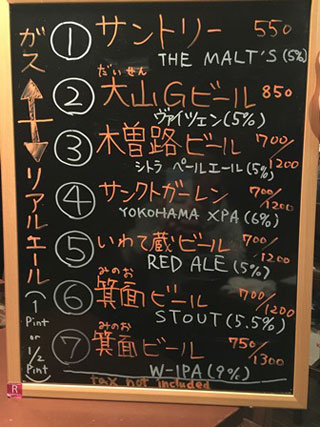 ガス
↕
リアルエール
(1 Pint or 1/2 Pint)
① サントリー 550
THE MALT'S (5%)
だいせん
② 大山Gビール 850
ヴァイツェン (5%)
③ 木曽路ビール 700/1200
シトラ ペールエール (5%)
④ サンクトガーレン 700/1200
YOKOHAMA XPA (6%)
⑤ いわて蔵ビール 700/1200
RED ALE (5%)
みのお
⑥ 箕面ビール 700/1200
STOUT (5.5%)
みのお
⑦ 箕面ビール 750/1300
W-IPA (9%)
tax not included
R